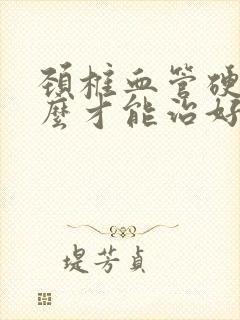 頚椎血管硬
麼才能治好
堤芳貞